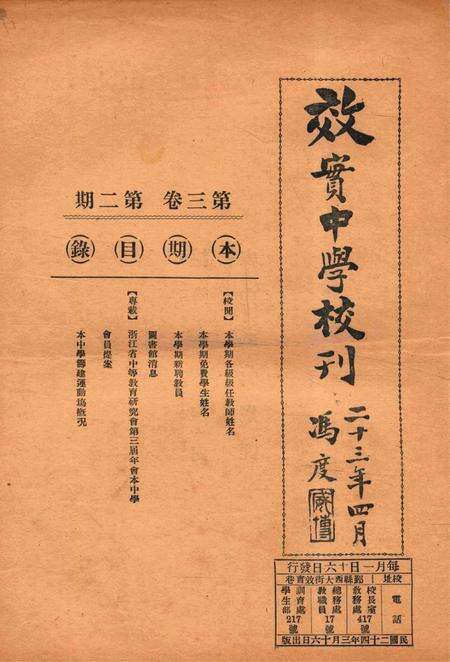 效實中學校刊
二十三年四月
馮度
第三卷 第二期
本期目錄
【校聞】本學期各級級任教師姓名
本學期免費學生姓名
本學期新聘教員
圖書館消息
【專載】浙江省中等教育研究會第三屆年會本中學
會員提案
本中學籌建運動場概況
每月一日十六日發行
校址｜鄞縣西大街效實巷
電話
校長室
教務處
417號
總務處
教職員
17號
訓育處
學生部
217號
民國二十四年三月十六日出版